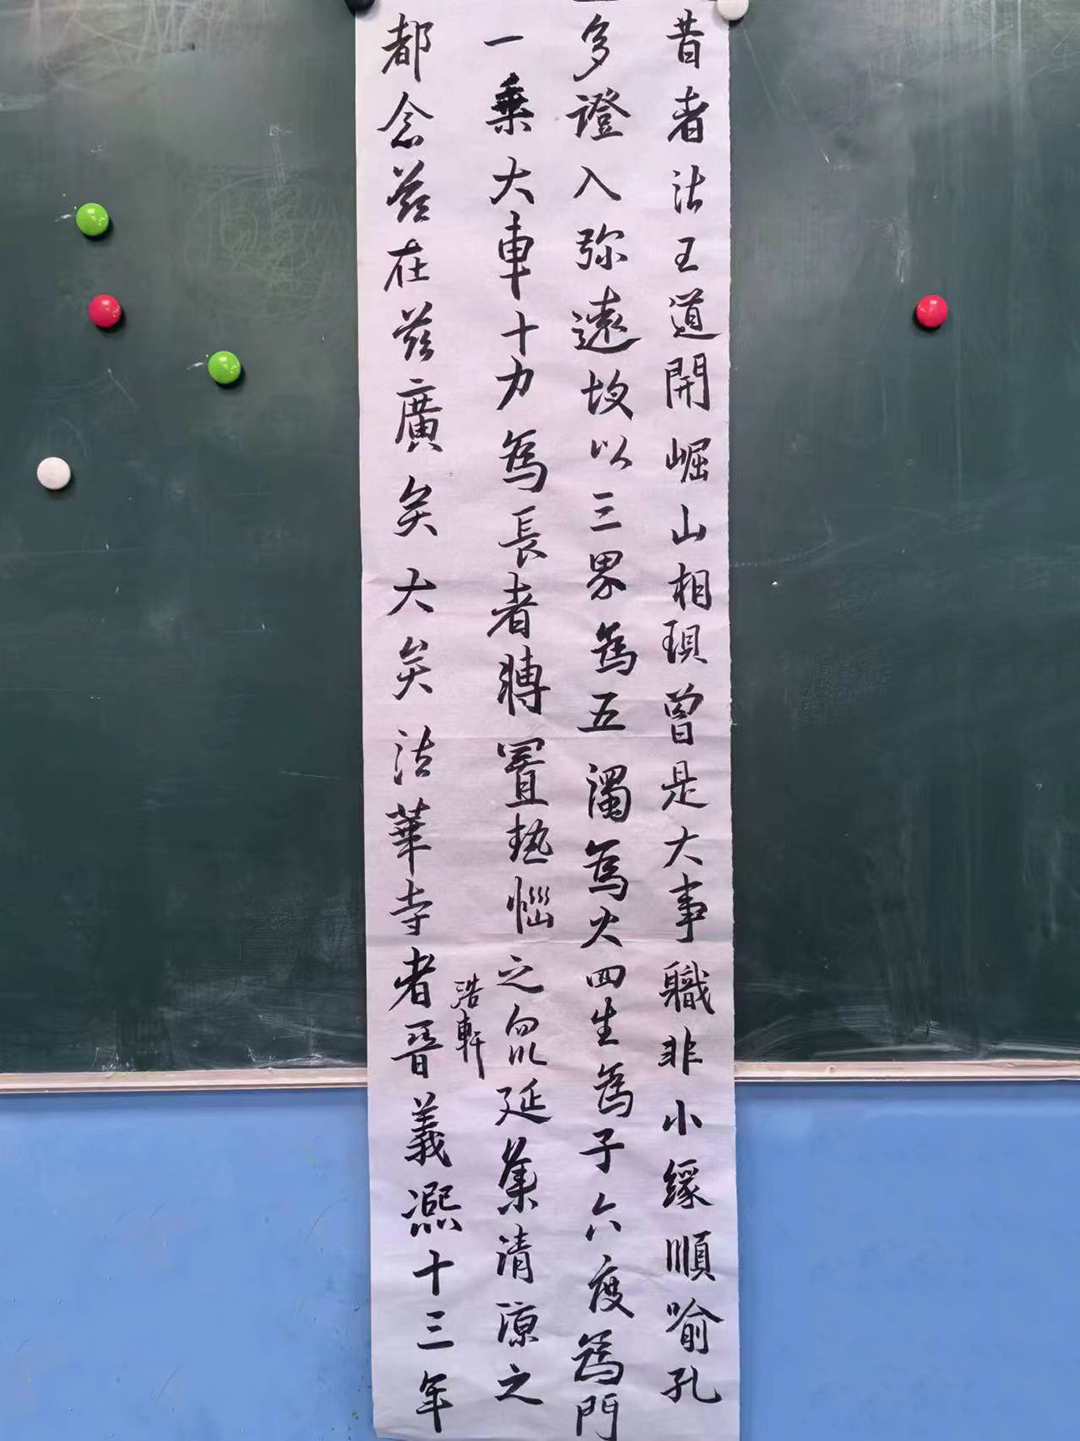 昔者法王道開崛山相現曾是大事職非小緣順喻孔
多證入弥遠故以三界為五濁為火四生為子六度為門
一乘大車十力為長者轉置热惱之衆延集清凉之
都念兹在兹廣矣大矣法華寺者晉義熙十三年
浩軒